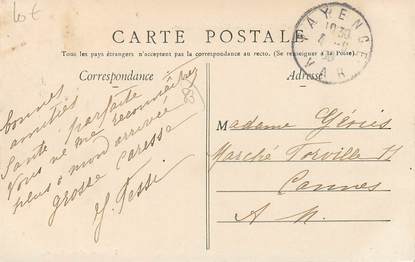 10€
CARTE POSTALE
Tous les pays étrangers n'acceptent pas la correspondance au recto. (Se renseigner à la Poste)
Correspondance
Adresse
FAYENCE
VAR
bonnes
amitiés
Santé parfaite
Vous ne me reconnaîtrez
plus à mon arrivée
grosse caresse
Madame
Marché Forville 11
Cannes
A M.